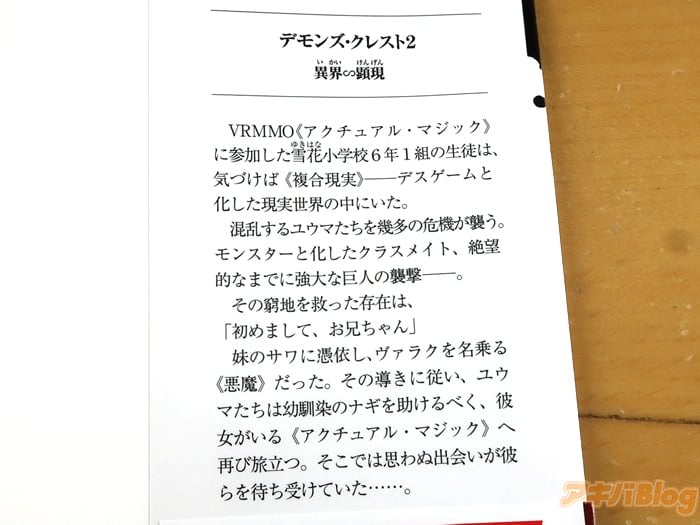 デモンズ・クレスト2
いかい けんげん
異界∽顕現
VRMMO《アクチュアル・マジック》
ゆきはな
に参加した雪花小学校6年1組の生徒は、
気づけば《複合現実》――デスゲームと
化した現実世界の中にいた。
混乱するユウマたちを幾多の危機が襲う。
モンスターと化したクラスメイト、絶望
的なまでに強大な巨人の襲撃――。
その窮地を救った存在は、
「初めまして、お兄ちゃん」
妹のサワに憑依し、ヴァラクを名乗る
《悪魔》だった。その導きに従い、ユウ
マたちは幼馴染のナギを助けるべく、彼
女がいる《アクチュアル・マジック》へ
再び旅立つ。そこでは思わぬ出会いが彼
らを待ち受けていた……。
アキバBlog